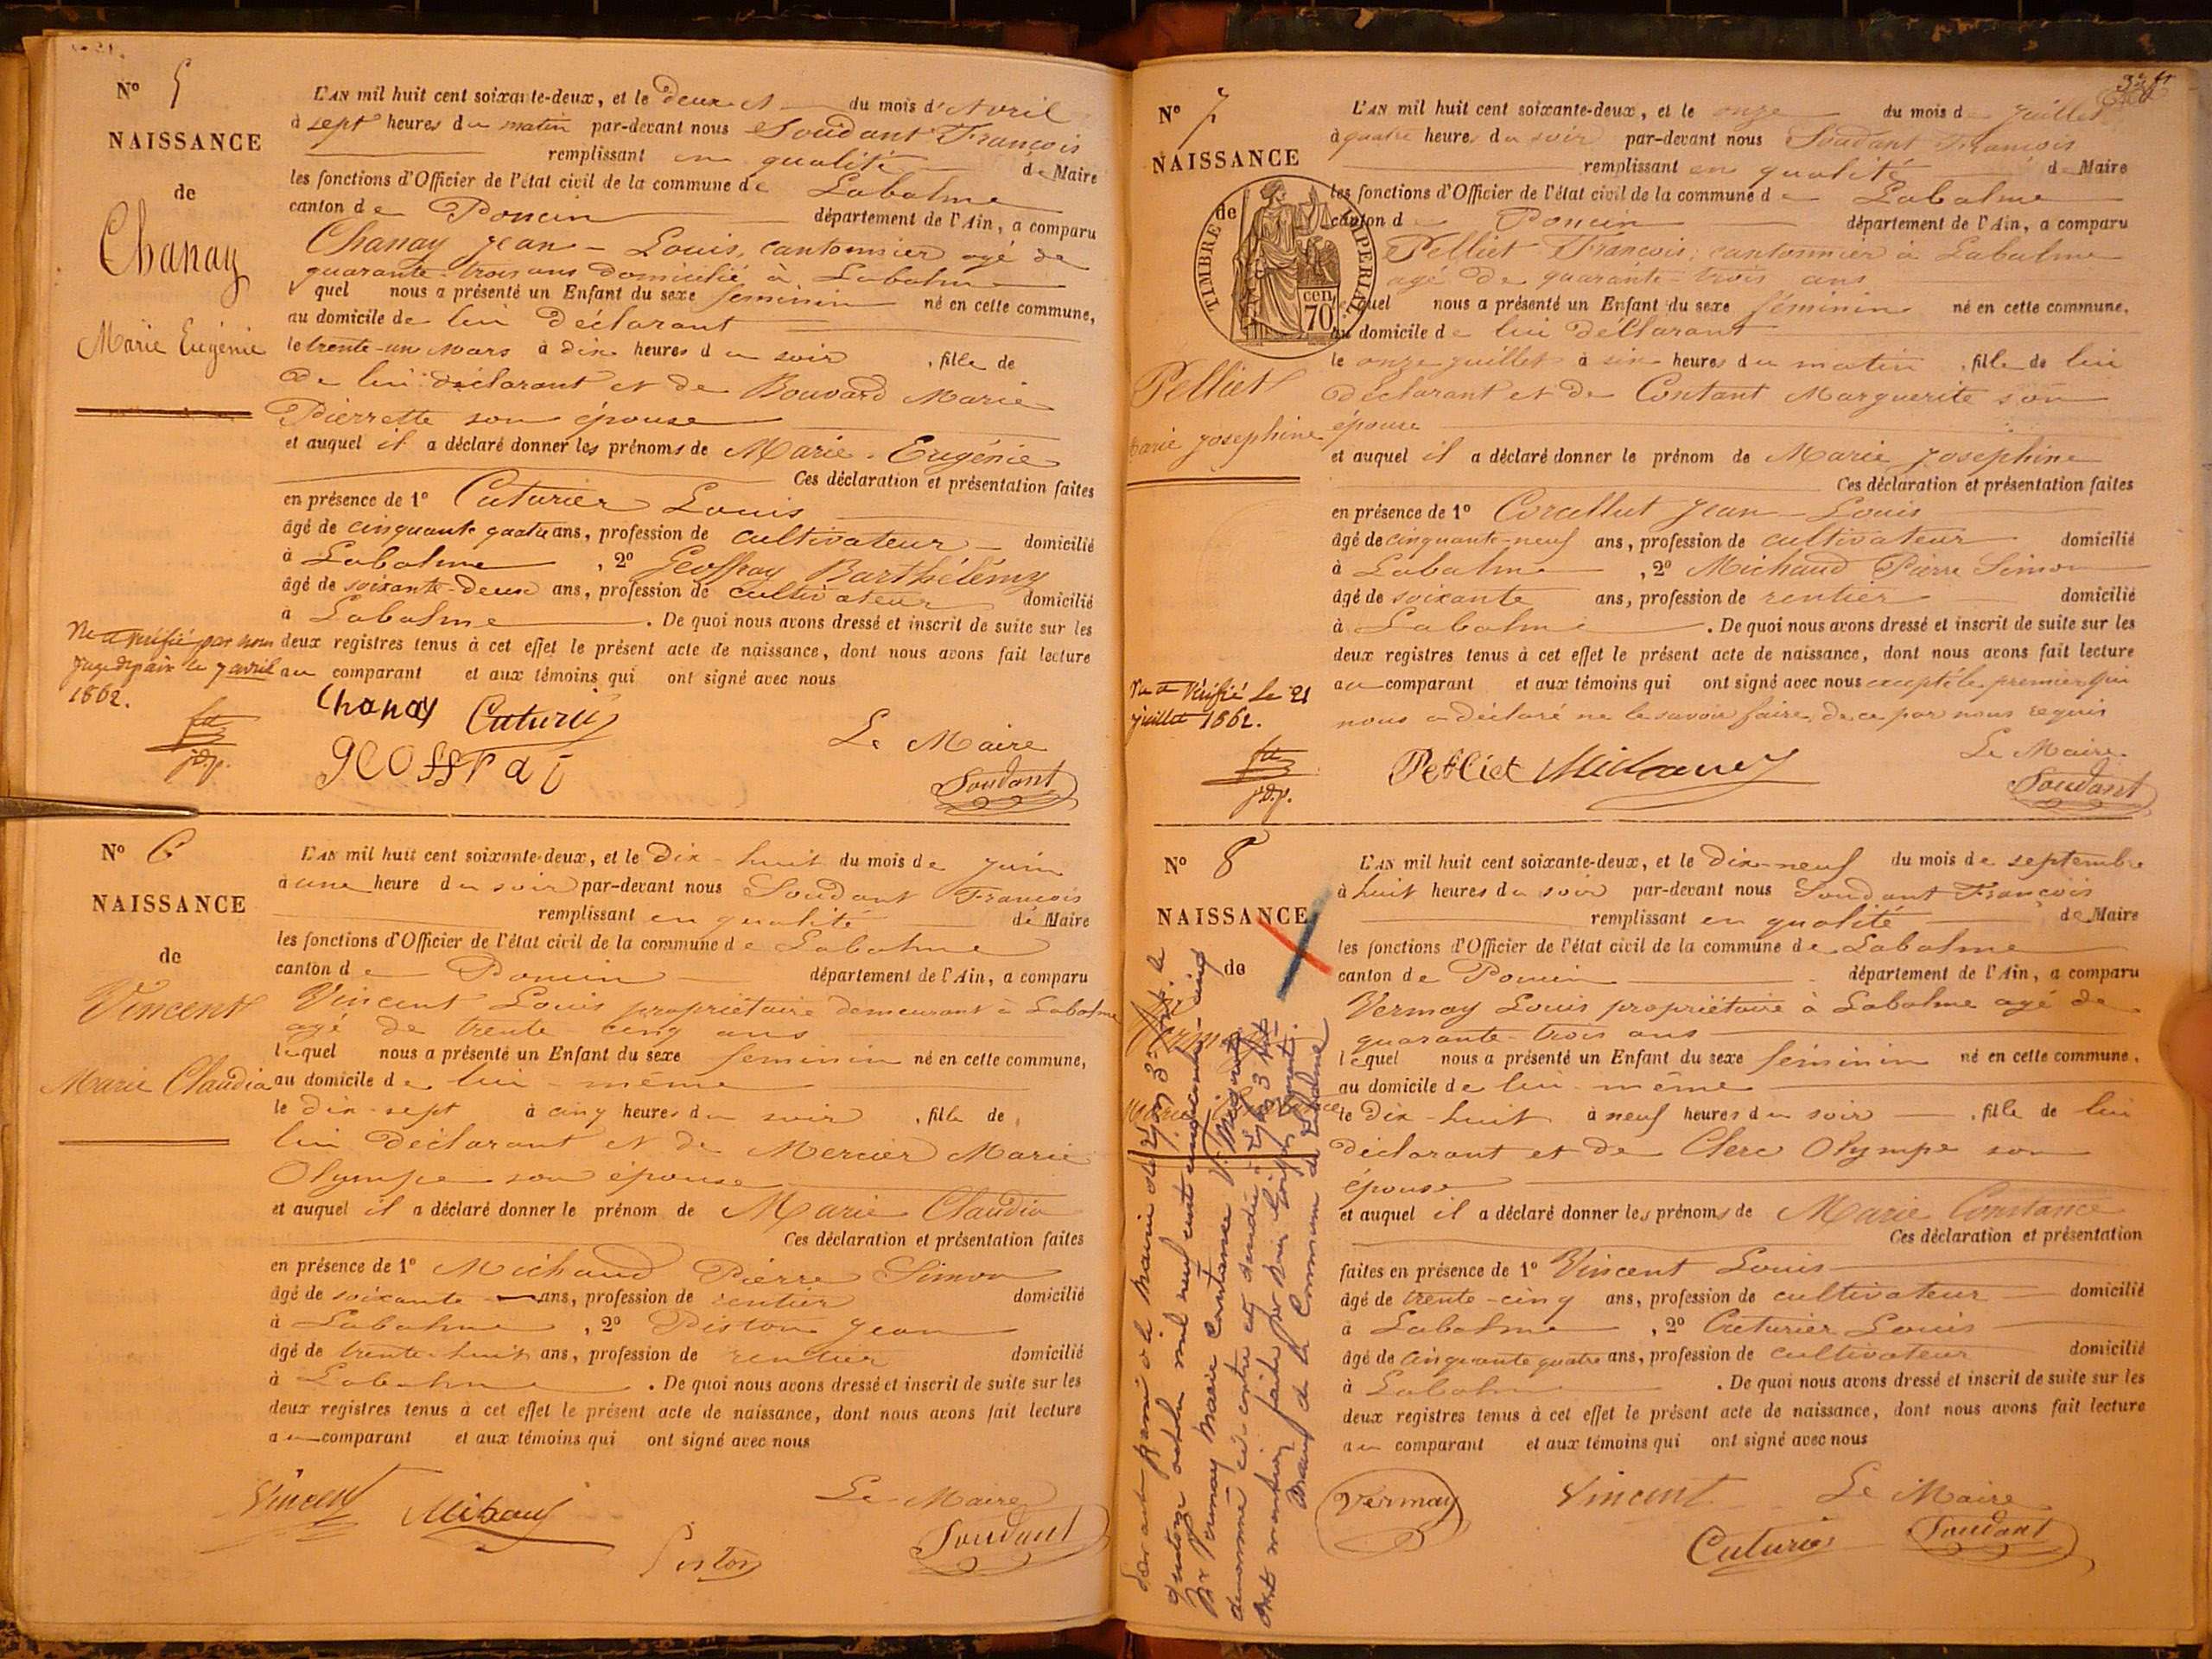 N° 5
NAISSANCE
de
Chanay
Marie Eugénie
L'AN mil huit cent soixante-deux, et le deux du mois d'Avril
à sept heures du matin par-devant nous Soudant François
remplissant en qualité de Maire
les fonctions d'Officier de l'état civil de la commune de Labalme
canton de Poncin département de l'Ain, a comparu
Chanay Jean-Louis, cantonnier agé de
quarante-trois ans domicilié à Labalme
quel nous a présenté un Enfant du sexe féminin né en cette commune,
au domicile de lui déclarant
le trente-un Mars à dix heures du soir, fille de
de lui déclarant et de Bouvard Marie
Pierrette son épouse
et auquel il a déclaré donner les prénoms de Marie-Eugénie
Ces déclaration et présentation faites
en présence de 1° Cuturier Louis
âgé de cinquante quatre ans, profession de cultivateur domicilié
à Labalme, 2° Geoffray Barthélémy
âgé de soixante-deux ans, profession de cultivateur domicilié
à Labalme. De quoi nous avons dressé et inscrit de suite sur les
deux registres tenus à cet effet le présent acte de naissance, dont nous avons fait lecture
au comparant et aux témoins qui ont signé avec nous
Vu et vérifié par nous
Juge de paix le 7 avril
1862.
j.d.p.
Chanay Cuturier
Geoffrai
Le Maire
Soudant
N° 6
NAISSANCE
de
Vincent
Marie Claudia
L'AN mil huit cent soixante-deux, et le dix-huit du mois de juin
à une heure du soir par-devant nous Soudant François
remplissant en qualité de Maire
les fonctions d'Officier de l'état civil de la commune de Labalme
canton de Poncin département de l'Ain, a comparu
Vincent Louis propriétaire demeurant à Labalme
agé de trente-cinq ans
lequel nous a présenté un Enfant du sexe féminin né en cette commune,
au domicile de lui-même
le dix-sept à cinq heures du soir, fille de
lui déclarant et de Mercier Marie
Olympe son épouse
et auquel il a déclaré donner le prénom de Marie Claudia
Ces déclaration et présentation faites
en présence de 1° Michaud Pierre Simon
âgé de soixante ans, profession de rentier domicilié
à Labalme, 2° Piston Jean
âgé de trente-huit ans, profession de rentier domicilié
à Labalme. De quoi nous avons dressé et inscrit de suite sur les
deux registres tenus à cet effet le présent acte de naissance, dont nous avons fait lecture
au comparant et aux témoins qui ont signé avec nous
Vincent Michaud
Piston
Le Maire
Soudant
N° 7
NAISSANCE
de
TIMBRE IMPERIAL
70 cen.
Pelliet
Marie Josephine
L'AN mil huit cent soixante-deux, et le onze du mois de Juillet
à quatre heures du soir par-devant nous Soudant François
remplissant en qualité de Maire
les fonctions d'Officier de l'état civil de la commune de Labalme
canton de Poncin département de l'Ain, a comparu
Pelliet François, cantonnier à Labalme
agé de quarante-trois ans
lequel nous a présenté un Enfant du sexe féminin né en cette commune,
au domicile de lui déclarant
le onze juillet à six heures du matin, fille de lui
déclarant et de Contant Marguerite son
épouse
et auquel il a déclaré donner le prénom de Marie Josephine
Ces déclaration et présentation faites
en présence de 1° Corcellut Jean-Louis
âgé de cinquante-neuf ans, profession de cultivateur domicilié
à Labalme, 2° Michaud Pierre Simon
âgé de soixante ans, profession de rentier domicilié
à Labalme. De quoi nous avons dressé et inscrit de suite sur les
deux registres tenus à cet effet le présent acte de naissance, dont nous avons fait lecture
au comparant et aux témoins qui ont signé avec nous excepté le premier qui
nous a déclaré ne le savoir faire, de ce par nous requis
Vu et vérifié le 21
juillet 1862.
j.d.p.
Pelliet Michaud
Le Maire
Soudant
N° 8
NAISSANCE
de
Marie Constance
L'AN mil huit cent soixante-deux, et le dix-neuf du mois de septembre
à huit heures du soir par-devant nous Soudant François
remplissant en qualité de Maire
les fonctions d'Officier de l'état civil de la commune de Labalme
canton de Poncin département de l'Ain, a comparu
Vermay Louis propriétaire à Labalme agé de
quarante-trois ans
lequel nous a présenté un Enfant du sexe féminin né en cette commune,
au domicile de lui-même
le dix-huit à neuf heures du soir, fille de lui
déclarant et de Clerc Olympe son
épouse
et auquel il a déclaré donner les prénoms de Marie Constance
Ces déclaration et présentation
faites en présence de 1° Vincent Louis
âgé de trente-cinq ans, profession de cultivateur domicilié
à Labalme, 2° Cuturier Louis
âgé de cinquante quatre ans, profession de cultivateur domicilié
à Labalme. De quoi nous avons dressé et inscrit de suite sur les
deux registres tenus à cet effet le présent acte de naissance, dont nous avons fait lecture
au comparant et aux témoins qui ont signé avec nous
Vermay Vincent
Cuturier
Le Maire
Soudant
mil neuf cent cinq
Marie Constance